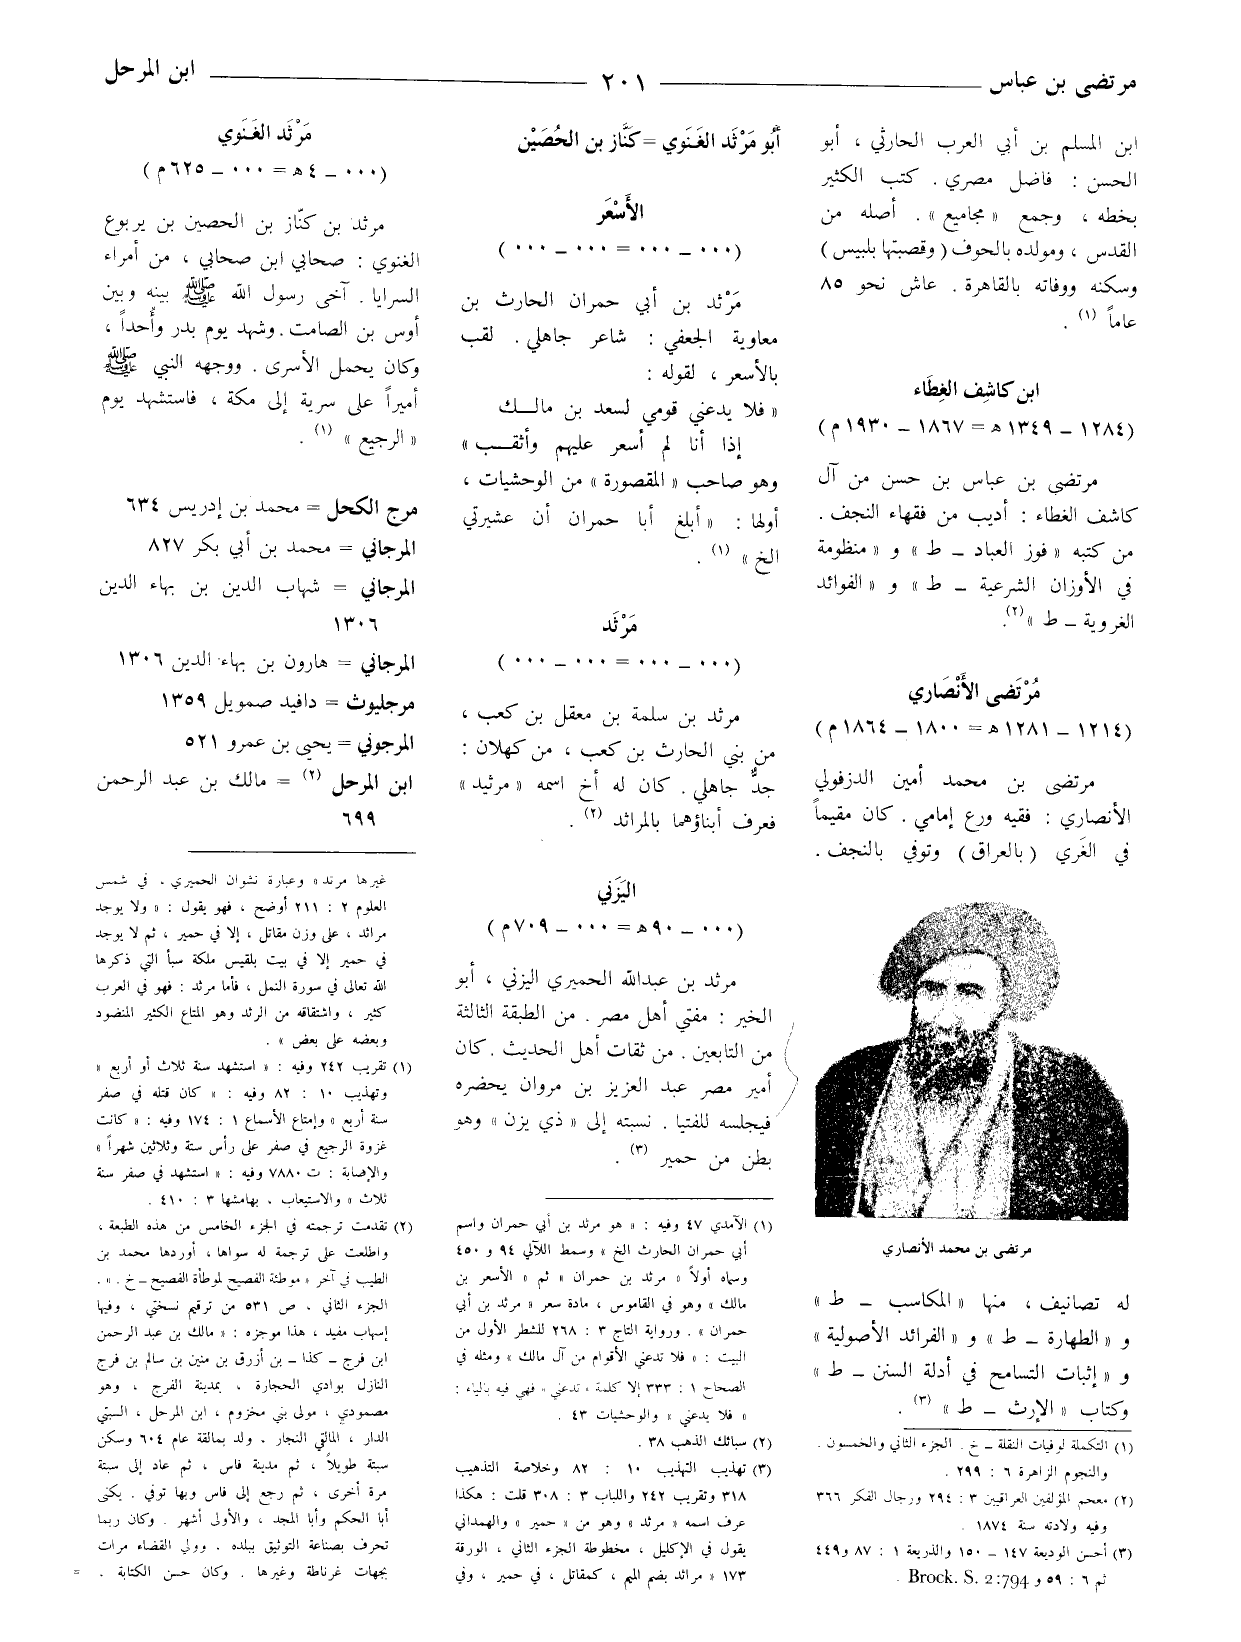 مرتضى بن عباس
٢٠١
ابن المرحل
ابن المسلم بن أبي العرب الحارثي ، أبو
الحسن : فاضل مصري . كتب الكثير
بخطه ، وجمع « مجاميع » . أصله من
القدس ، ومولده بالحوف ( وقصبتها بلبيس )
وسكنه ووفاته بالقاهرة . عاش نحو ٨٥
عاماً (١) .
ابن كاشِف الغِطَاء
(١٢٨٤ ـ ١٣٤٩ هـ = ١٨٦٧ ـ ١٩٣٠ م)
مرتضى بن عباس بن حسن من آل
كاشف الغطاء : أديب من فقهاء النجف .
من كتبه « فوز العباد ـ ط » و « منظومة
في الأوزان الشرعية ـ ط » و « الفوائد
الغروية ـ ط » (٢).
مُرْتَضى الأَنْصَاري
(١٢١٤ ـ ١٢٨١ هـ = ١٨٠٠ ـ ١٨٦٤ م)
مرتضى بن محمد أمين الدزفولي
الأنصاري : فقيه ورع إمامي . كان مقيماً
في الغَري ( بالعراق ) وتوفي بالنجف .
مرتضى بن محمد الأنصاري
له تصانيف ، منها « المكاسب ـ ط »
و « الطهارة ـ ط » و « الفرائد الأصولية »
و « إثبات التسامح في أدلة السنن ـ ط »
وكتاب « الإرث ـ ط » (٣) .
(١) التكملة لوفيات النقلة ـ خ . الجزء الثاني والخمسون .
والنجوم الزاهرة ٦ : ٢٩٩ .
(٢) معجم المؤلفين العراقيين ٣ : ٢٩٤ ورجال الفكر ٣٦٦
وفيه ولادته سنة ١٨٧٤ .
(٣) أحسن الوديعة ١٤٧ ـ ١٥٠ والذريعة ١ : ٨٧ و ٤٤٩
ثم ٦ : ٥٩ و Brock. S. 2:794 .
أَبُو مَرْثَد الغَنَوي = كَنَّاز بن الحُصَيْن
الأَسْعَر
( ٠٠٠ ـ ٠٠٠ = ٠٠٠ ـ ٠٠٠ )
مَرْثد بن أبي حمران الحارث بن
معاوية الجعفي : شاعر جاهلي . لقب
بالأسعر ، لقوله :
« فلا يدعني قومي لسعد بن مالـــك
إذا أنا لم أسعر عليهم وأثقــب »
وهو صاحب « المقصورة » من الوحشيات ،
أولها : « أبلغ أبا حمران أن عشيرتي
الخ » (١) .
مَرْثَد
( ٠٠٠ ـ ٠٠٠ = ٠٠٠ ـ ٠٠٠ )
مرثد بن سلمة بن معقل بن كعب ،
من بني الحارث بن كعب ، من كهلان :
جدٌّ جاهلي . كان له أخ اسمه « مرثيد »
فعرف أبناؤهما بالمراثد (٢) .
اليَزَني
(٠٠٠ ـ ٩٠ هـ = ٠٠٠ ـ ٧٠٩ م)
مرثد بن عبدالله الحميري اليزني ، أبو
الخير : مفتي أهل مصر . من الطبقة الثالثة
من التابعين . من ثقات أهل الحديث . كان
أمير مصر عبد العزيز بن مروان يحضره
فيجلسه للفتيا . نسبته إلى « ذي يزن » وهو
بطن من حمير (٣) .
(١) الآمدي ٤٧ وفيه : « هو مرثد بن أبي حمران واسم
أبي حمران الحارث الخ » وسمط اللآلي ٩٤ و ٤٥٠
وسماه أولاً « مرثد بن حمران » ثم « الأسعر بن
مالك » وهو في القاموس ، مادة سعر « مرثد بن أبي
حمران » . ورواية التاج ٣ : ٢٦٨ للشطر الأول من
البيت : « فلا تدعني الأقوام من آل مالك » ومثله في
الصحاح ١ : ٣٣٣ إلا كلمة « تدعني » فهي فيه بالياء :
« فلا يدعني » والوحشيات ٤٣ .
(٢) سبائك الذهب ٣٨ .
(٣) تهذيب التهذيب ١٠ : ٨٢ وخلاصة التذهيب
٣١٨ وتقريب ٢٤٢ واللباب ٣ : ٣٠٨ قلت : هكذا
عرف اسمه « مرثد » وهو من « حمير » والهمداني
يقول في الإكليل ، مخطوطة الجزء الثاني ، الورقة
١٧٣ « مراثد بضم الميم ، كمقاتل ، في حمير ، وفي
مَرْثَد الغَنَوي
(٠٠٠ ـ ٤ هـ = ٠٠٠ ـ ٦٢٥ م)
مرثد بن كنّاز بن الحصين بن يربوع
الغنوي : صحابي ابن صحابي ، من أمراء
السرايا . آخى رسول الله ﷺ بينه وبين
أوس بن الصامت . وشهد يوم بدر وأُحداً ،
وكان يحمل الأسرى . ووجهه النبي ﷺ
أميراً على سرية إلى مكة ، فاستشهد يوم
« الرجيع » (١) .
مرج الكحل = محمد بن إدريس ٦٣٤
المرجاني = محمد بن أبي بكر ٨٢٧
المرجاني = شهاب الدين بن بهاء الدين
١٣٠٦
المرجاني = هارون بن بهاء الدين ١٣٠٦
مرجليوث = دافيد صمويل ١٣٥٩
المرجوني = يحيى بن عمرو ٥٢١
ابن المرحل (٢) = مالك بن عبد الرحمن
٦٩٩
غيرها مرثد » وعبارة نشوان الحميري ، في شمس
العلوم ٢ : ٢١١ أوضح ، فهو يقول : « ولا يوجد
مراثد ، على وزن مقاتل ، إلا في حمير ، ثم لا يوجد
في حمير إلا في بيت بلقيس ملكة سبأ التي ذكرها
الله تعالى في سورة النمل ، فأما مرثد : فهو في العرب
كثير ، واشتقاقه من الرثد وهو المتاع الكثير المنضود
وبعضه على بعض » .
(١) تقريب ٢٤٢ وفيه : « استشهد سنة ثلاث أو أربع »
وتهذيب ١٠ : ٨٢ وفيه : « كان قتله في صفر
سنة أربع » وإمتاع الأسماع ١ : ١٧٤ وفيه : « كانت
غزوة الرجيع في صفر على رأس ستة وثلاثين شهراً »
والإصابة : ت ٧٨٨٠ وفيه : « استشهد في صفر سنة
ثلاث » والاستيعاب ، بهامشها ٣ : ٤١٠ .
(٢) تقدمت ترجمته في الجزء الخامس من هذه الطبعة ،
واطلعت على ترجمة له سواها ، أوردها محمد بن
الطيب في آخر « موطئة الفصيح لموطأة الفصيح ـ خ . » .
الجزء الثاني ، ص ٥٣١ من ترقيم نسختي ، وفيها
إسهاب مفيد ، هذا موجزه : « مالك بن عبد الرحمن
ابن فرج ـ كذا ـ بن أزرق بن منين بن سالم بن فرج
النازل بوادي الحجارة ، بمدينة الفرج ، وهو
مصمودي ، مولى بني مخزوم ، ابن المرحل ، السبتي
الدار ، المالقي النجار . ولد بمالقة عام ٦٠٤ وسكن
سبتة طويلاً ، ثم مدينة فاس ، ثم عاد إلى سبتة
مرة أخرى ، ثم رجع إلى فاس وبها توفي . يكنى
أبا الحكم وأبا المجد ، والأولى أشهر . وكان ربما
تحرف بصناعة التوثيق ببلده . وولي القضاء مرات
بجهات غرناطة وغيرها . وكان حسن الكتابة . =